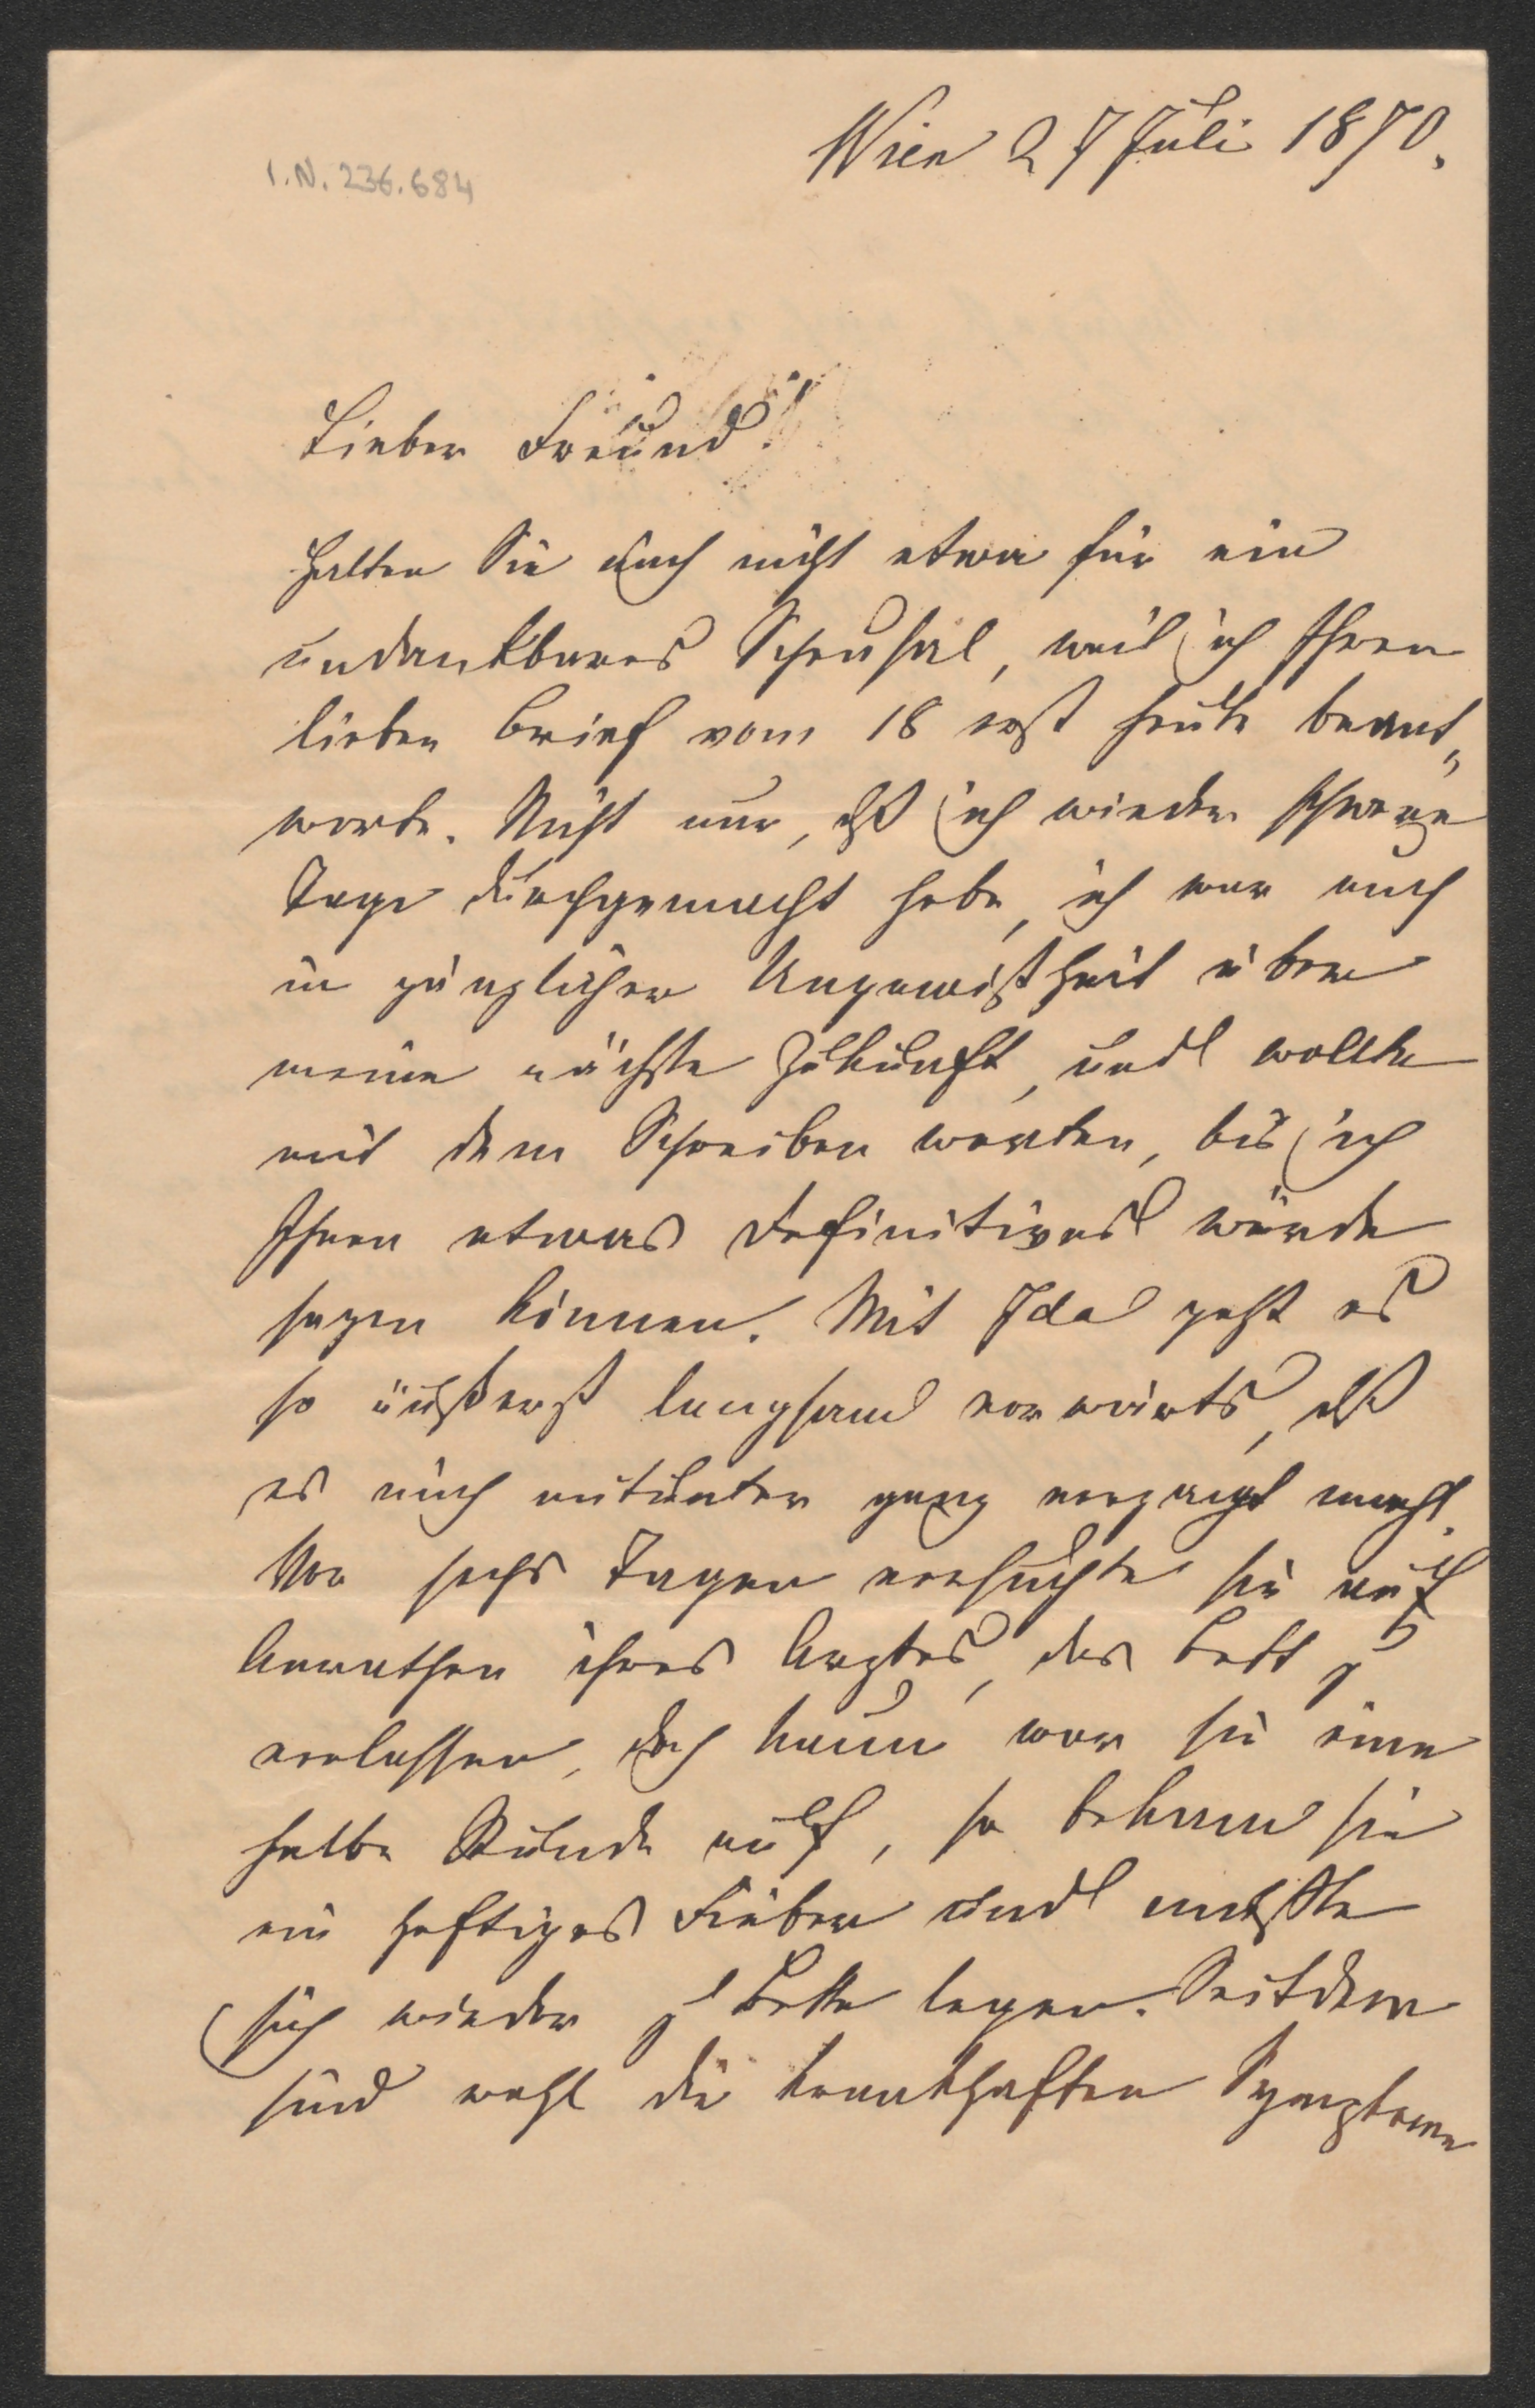 Wien 27 Juli 1870.
I.N. 236.684
Lieber Freund!
Halten Sie mich nicht etwa für ein
undankbares Scheusal, weil ich Ihren
lieben Brief vom 18 erst heute beant„
worte. Nicht nur, dß ich wieder schwere
Tage durchgemacht habe, ich war auch
in gänzlicher Ungewißheit über
meine nächste Zukunft, und wollte
mit dem Schreiben warten, bis ich
Ihnen etwas Definitives würde
sagen können. Mit Ida geht es
so äußerst langsam vorwärts, dß
es mich mitunter ganz verzagt macht.
Vor sechs Tagen versuchte sie auf
Anrathen ihres Arztes, das Bett zu
verlassen, doch kaum war sie eine
halbe Stunde auf, so bekam sie
ein heftiges Fieber und mußte
sich wieder zu Bette legen. Seitdem
sind wohl die krankhaften Symptome